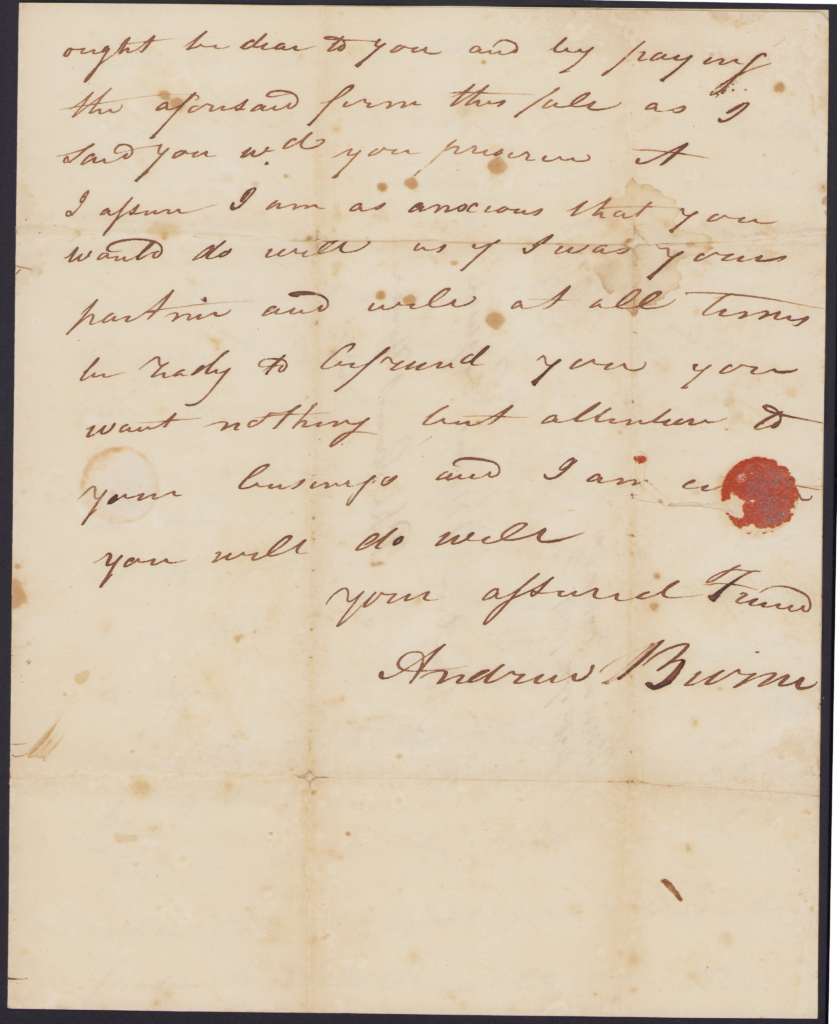 ought be dear to you and by paying
the aforesaid firm this sale as I
said you wd you preserve it
I assure I am as anxious that you
would do well as if I was yours
partner and will at all times
be ready to befriend you you
want nothing but attention to
your business and I am
you will do well
your assured Friend
Andrew Beirne